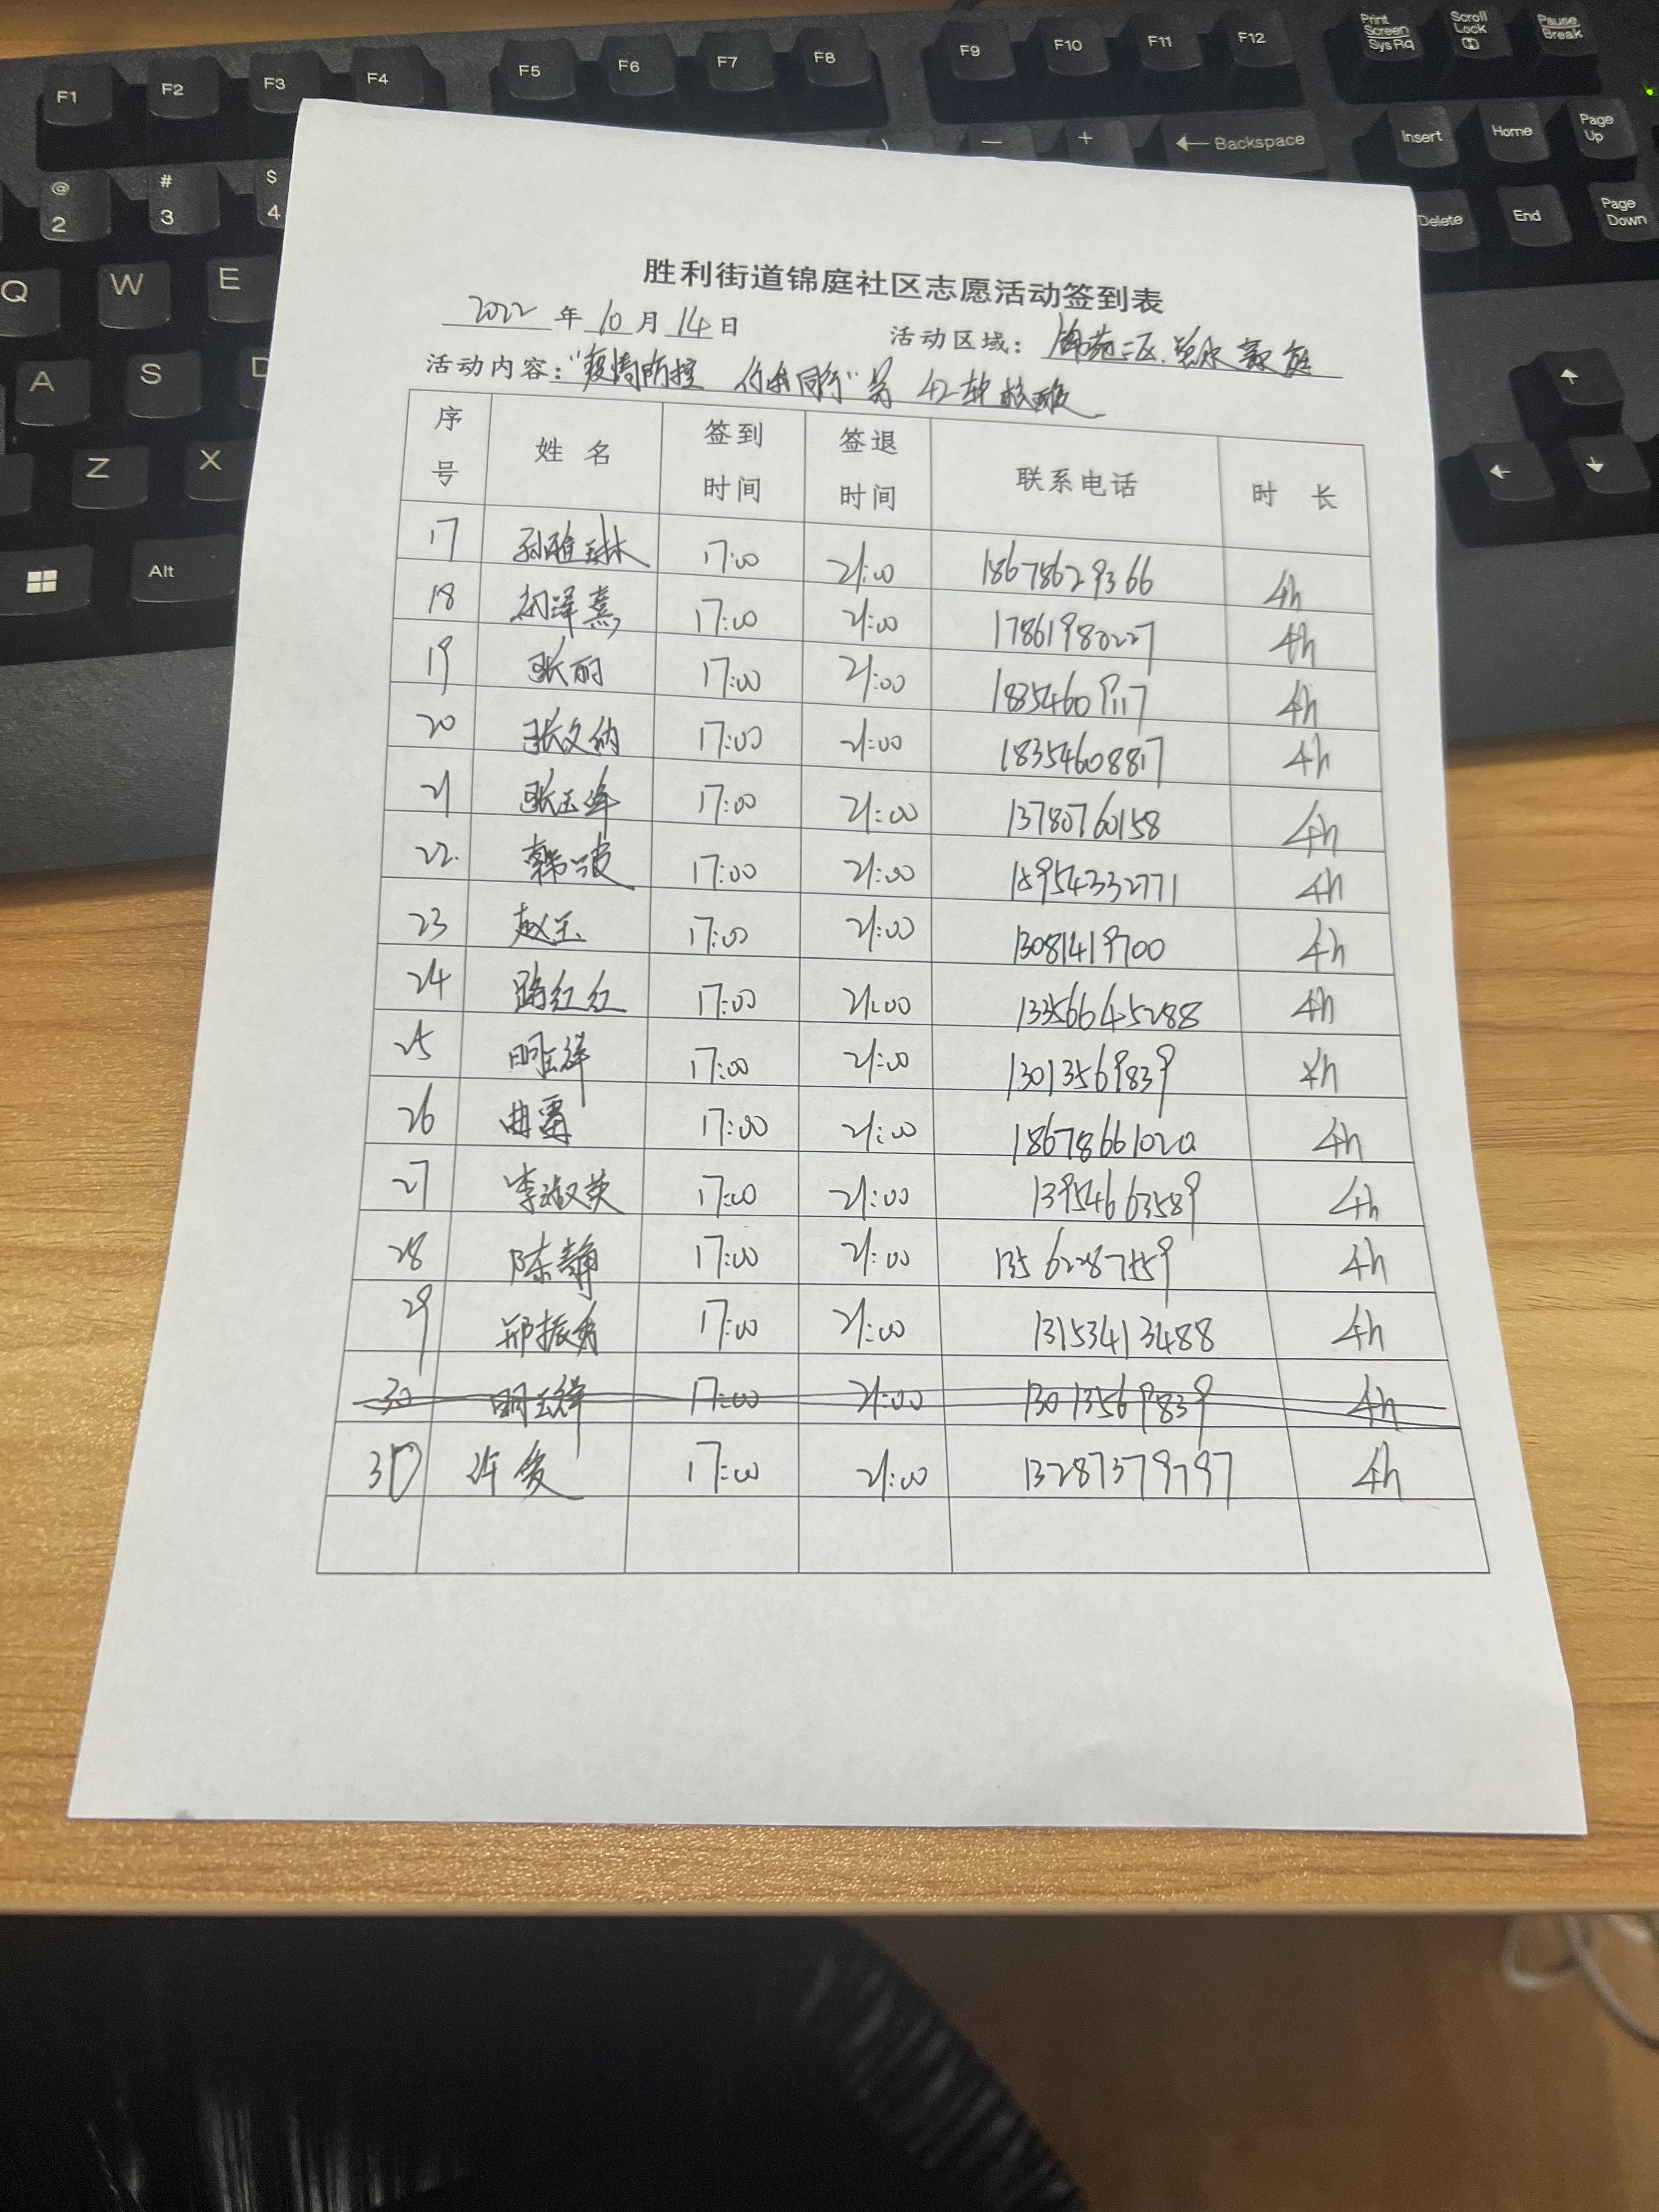 F1 F2 F3 F4 F5 F6 F7 F8 F9 F10 F11 F12 Print Screen SysRq Scroll Lock Pause Break
@ 2 # 3 $ 4 — + ← Backspace Insert Home Page Up
Q W E Delete End Page Down
A S D
Z X
Alt
胜利街道锦庭社区志愿活动签到表
2022 年 10 月 14 日 活动区域: 锦苑二区
活动内容: "疫情防控 你我同行" 第 42轮核酸
序号 姓名 签到时间 签退时间 联系电话 时长
17 孙雅琳 17:00 21:00 18678629366 4h
18 17:00 21:00 17861980227 4h
19 张丽 17:00 21:00 18354609117 4h
20 张文纳 17:00 21:00 18354608817 4h
21 张玉峰 17:00 21:00 13780760158 4h
22. 韩波 17:00 21:00 18954332771 4h
23 赵玉 17:00 21:00 13081419700 4h
24 路红红 17:00 21:00 13356645288 4h
25 明玉祥 17:00 21:00 13013569839 4h
26 曲雷 17:00 21:00 18678661020 4h
27 李淑英 17:00 21:00 13954663589 4h
28 陈静 17:00 21:00 13562287559 4h
29 郑振秀 17:00 21:00 13153413488 4h
30 明玉祥 17:00 21:00 13013569839 4h
30 许俊 17:00 21:00 13287379797 4h